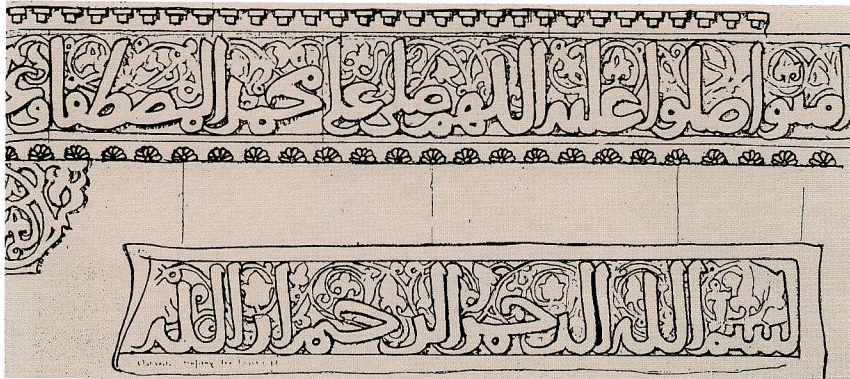 امنوا صلوا عليه اللهم صل على محمد المصطفى
بسم الله الرحمن الرحيم ان الله